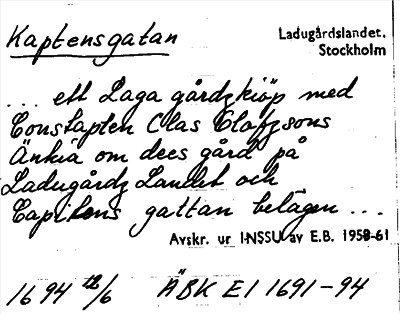 Kaptensgatan
Ladugårdslandet.
Stockholm
... ett Laga gårdzkiöp med
Constaplen Clas Olofzsons
Änkia om dees gård på
Ladugårdz Landet och
Capitens gattan belägen ...
Avskr. ur INSSU av E.B. 1958-61
1694 /6 ÄBK E1 1691-94